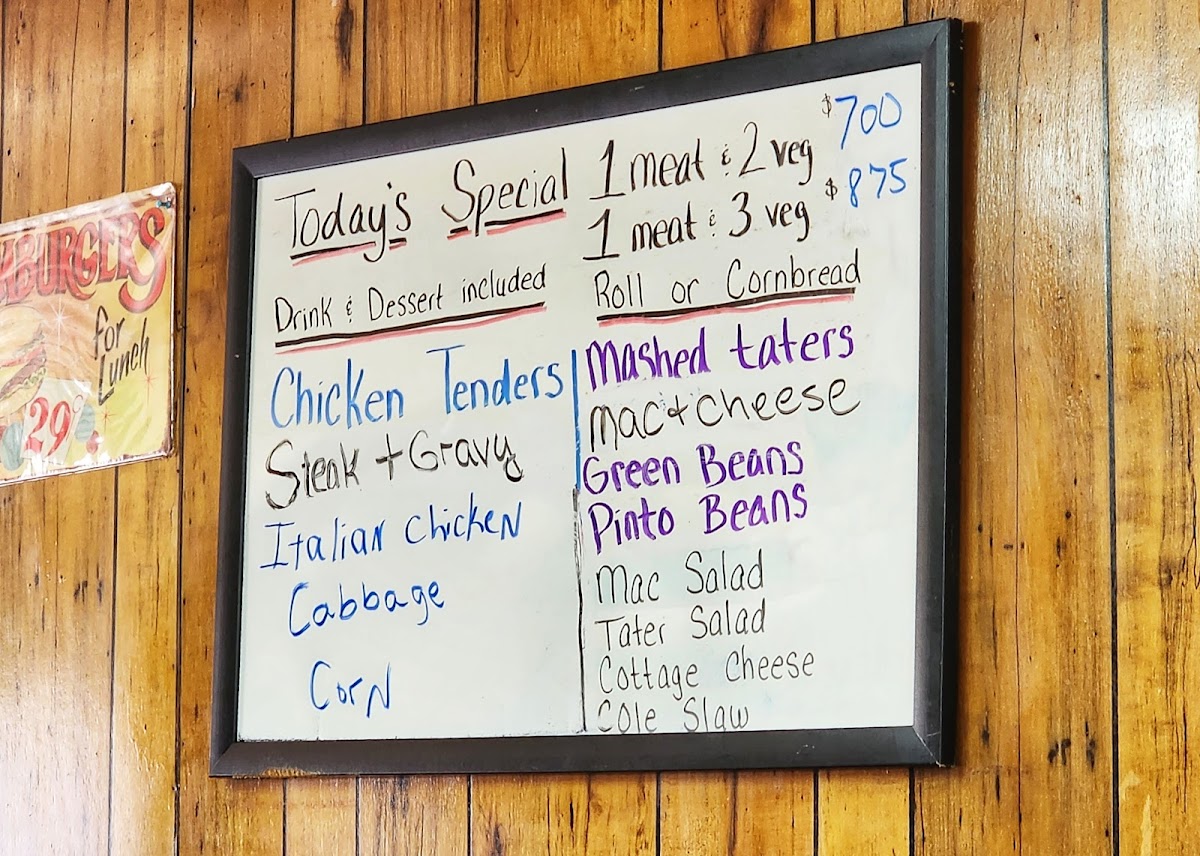 Today's Special
1 meat & 2 veg $700
1 meat & 3 veg $875
Drink & Dessert included
Roll or Cornbread
Chicken Tenders
Steak + Gravy
Italian Chicken
Cabbage
Corn
Mashed taters
Mac + cheese
Green Beans
Pinto Beans
Mac Salad
Tater Salad
Cottage Cheese
Cole Slaw
for
Lunch
29¢